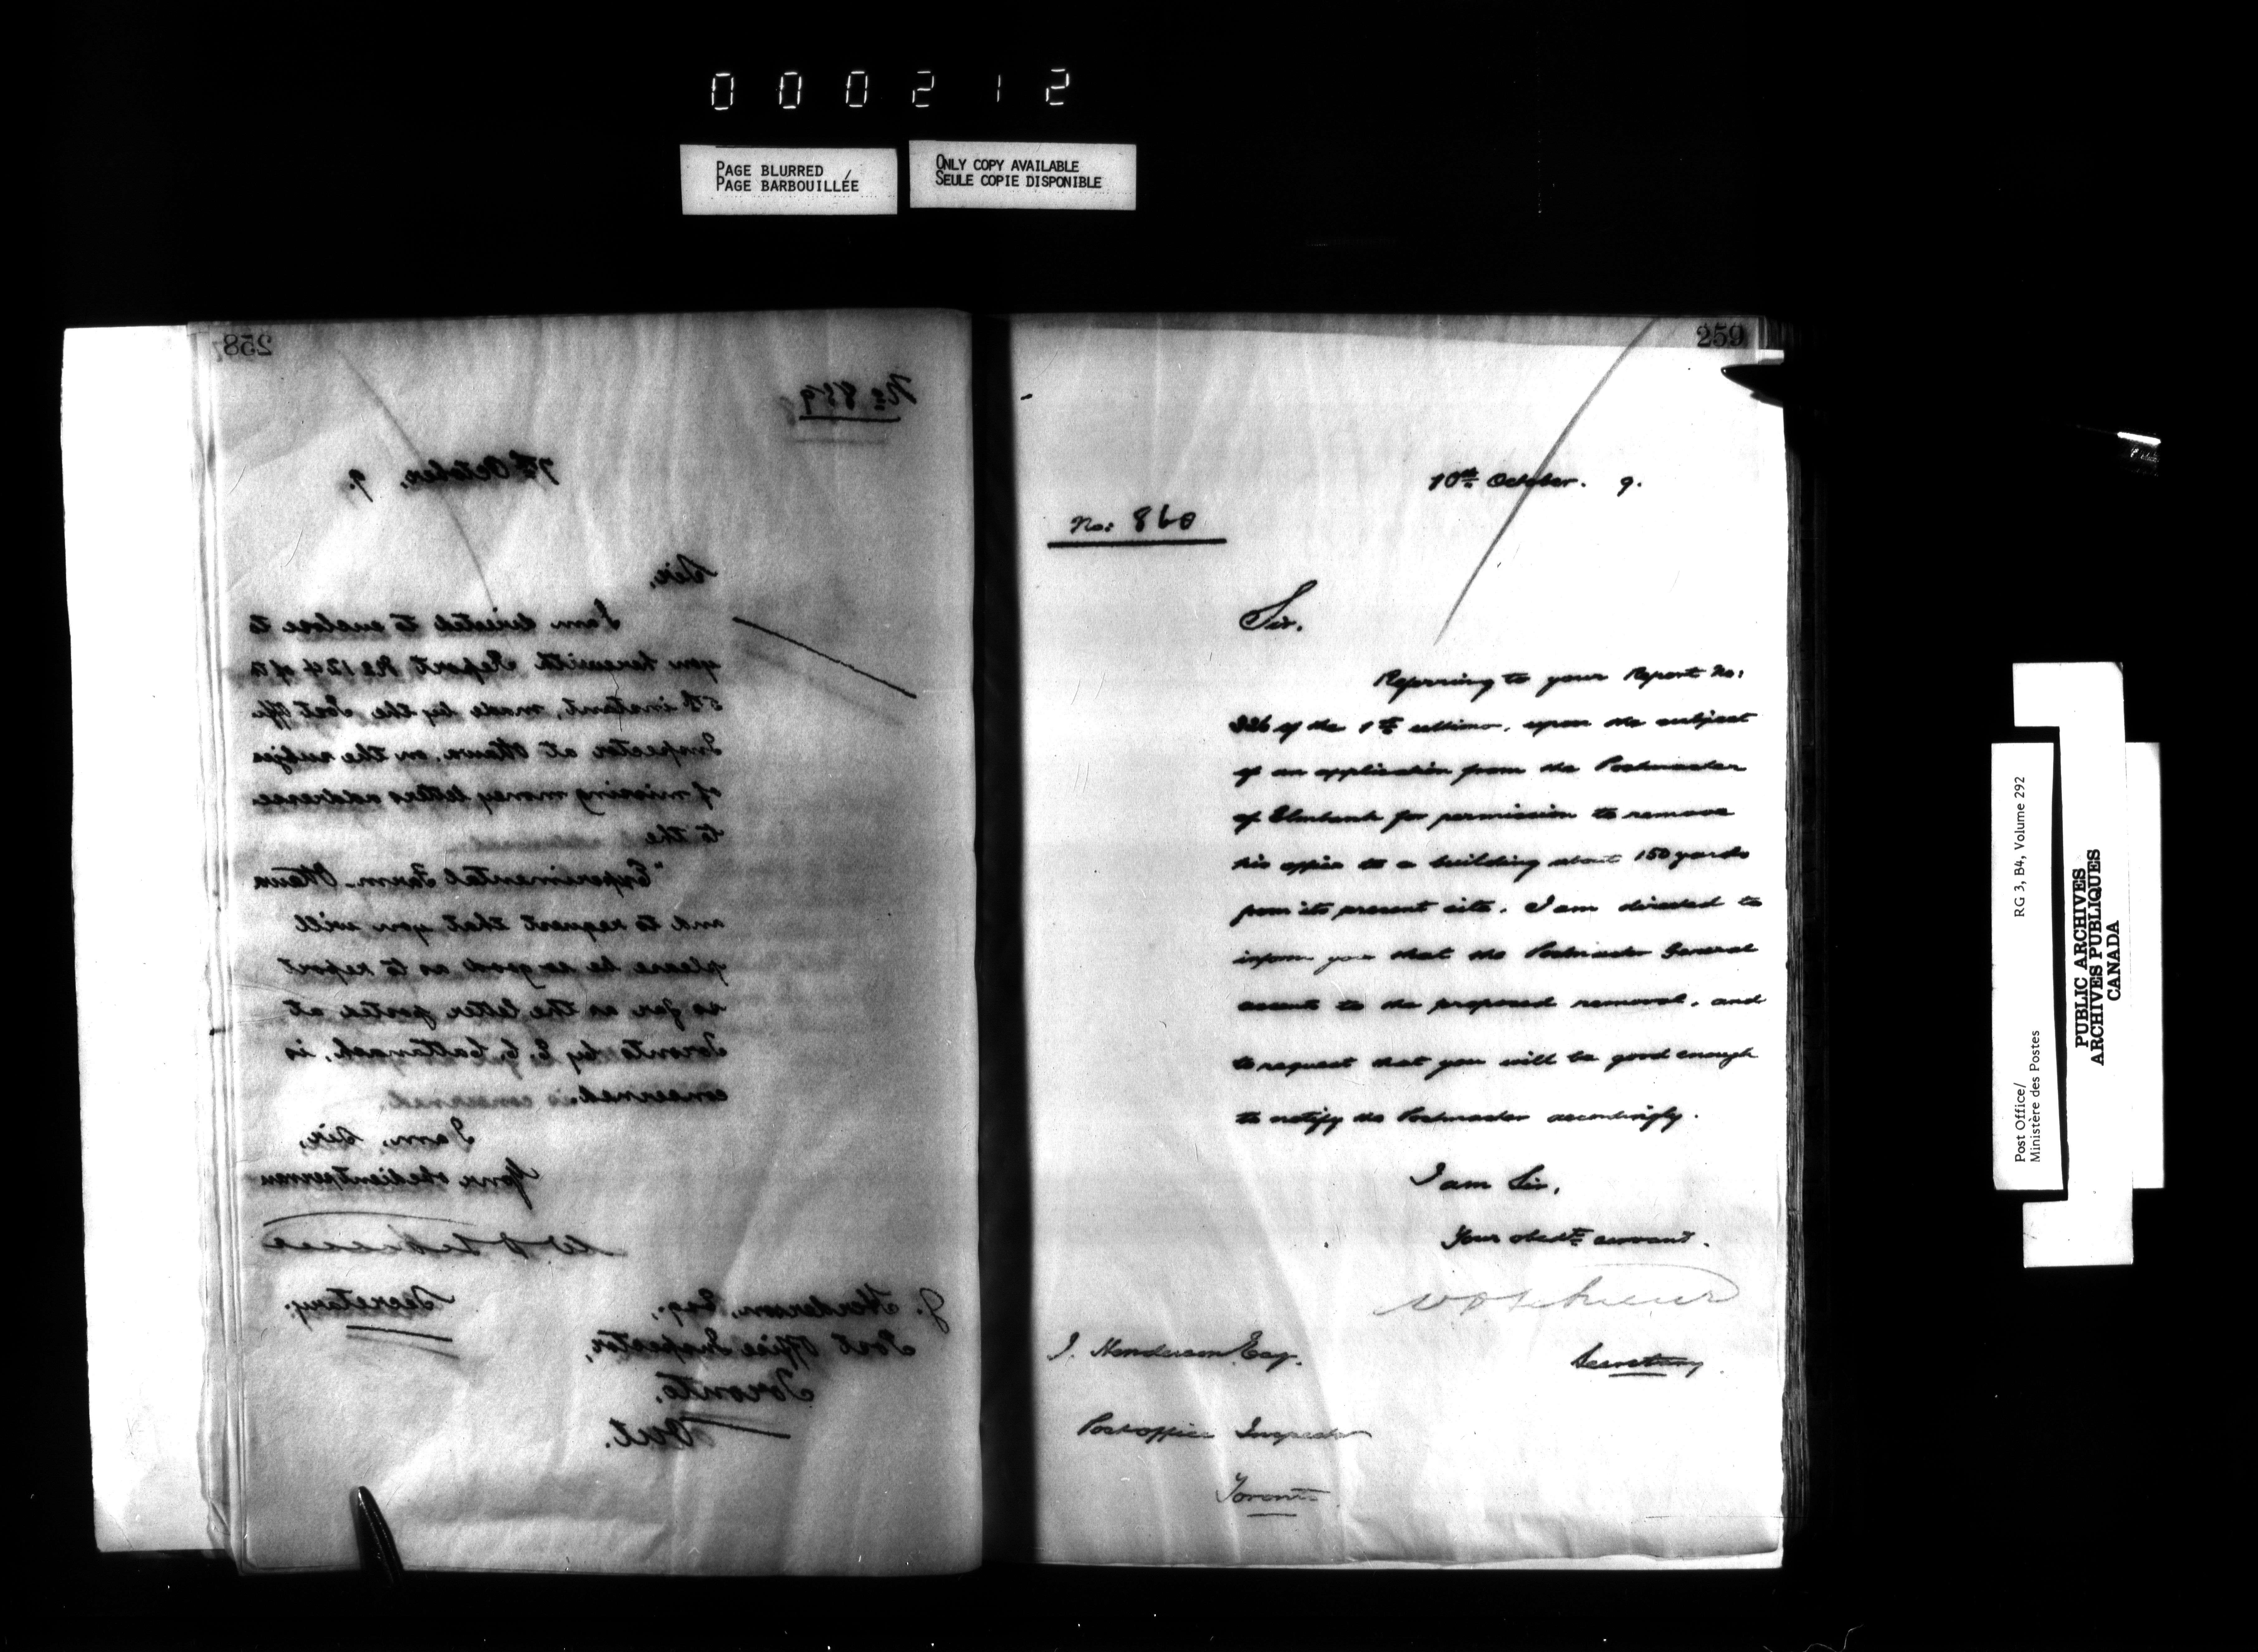 000212
PAGE BLURRED
PAGE BARBOUILLÉE
ONLY COPY AVAILABLE
SEULE COPIE DISPONIBLE
258
No 859
7th October, 9.
Sir,
I am directed to enclose to
you herewith Report No 124 of the
5th instant, made by the Post Offi
Inspector at Ottawa, on the subjec
of missing money letters addresse
to the
"Experimental Farm. Ottawa
and to request that you will
please be so good as to report
so far as the letter posted at
Toronto by E. C. Cattanach, is
concerned.
I am, Sir,
Your obedient servan
Secretary.
J. Henderson, Esq.,
Post Office Inspector,
Toronto,
Ont.
259
10th October. 9.
No: 860
Sir.
Referring to your Report No:
326 of the 1st ultimo, upon the subject
of an application from the Postmaster
of Elmbank for permission to remove
his office to a building about 150 yards
from its present site. I am directed to
inform you that the Postmaster General
assents to the proposed removal, and
to request that you will be good enough
to notify the Postmaster accordingly.
I am Sir,
Your obedt servant.
Secretary.
J. Henderson Esq.
Post office Inspector
Toronto
Post Office/
Ministère des Postes
RG 3, B4, Volume 292
PUBLIC ARCHIVES
ARCHIVES PUBLIQUES
CANADA